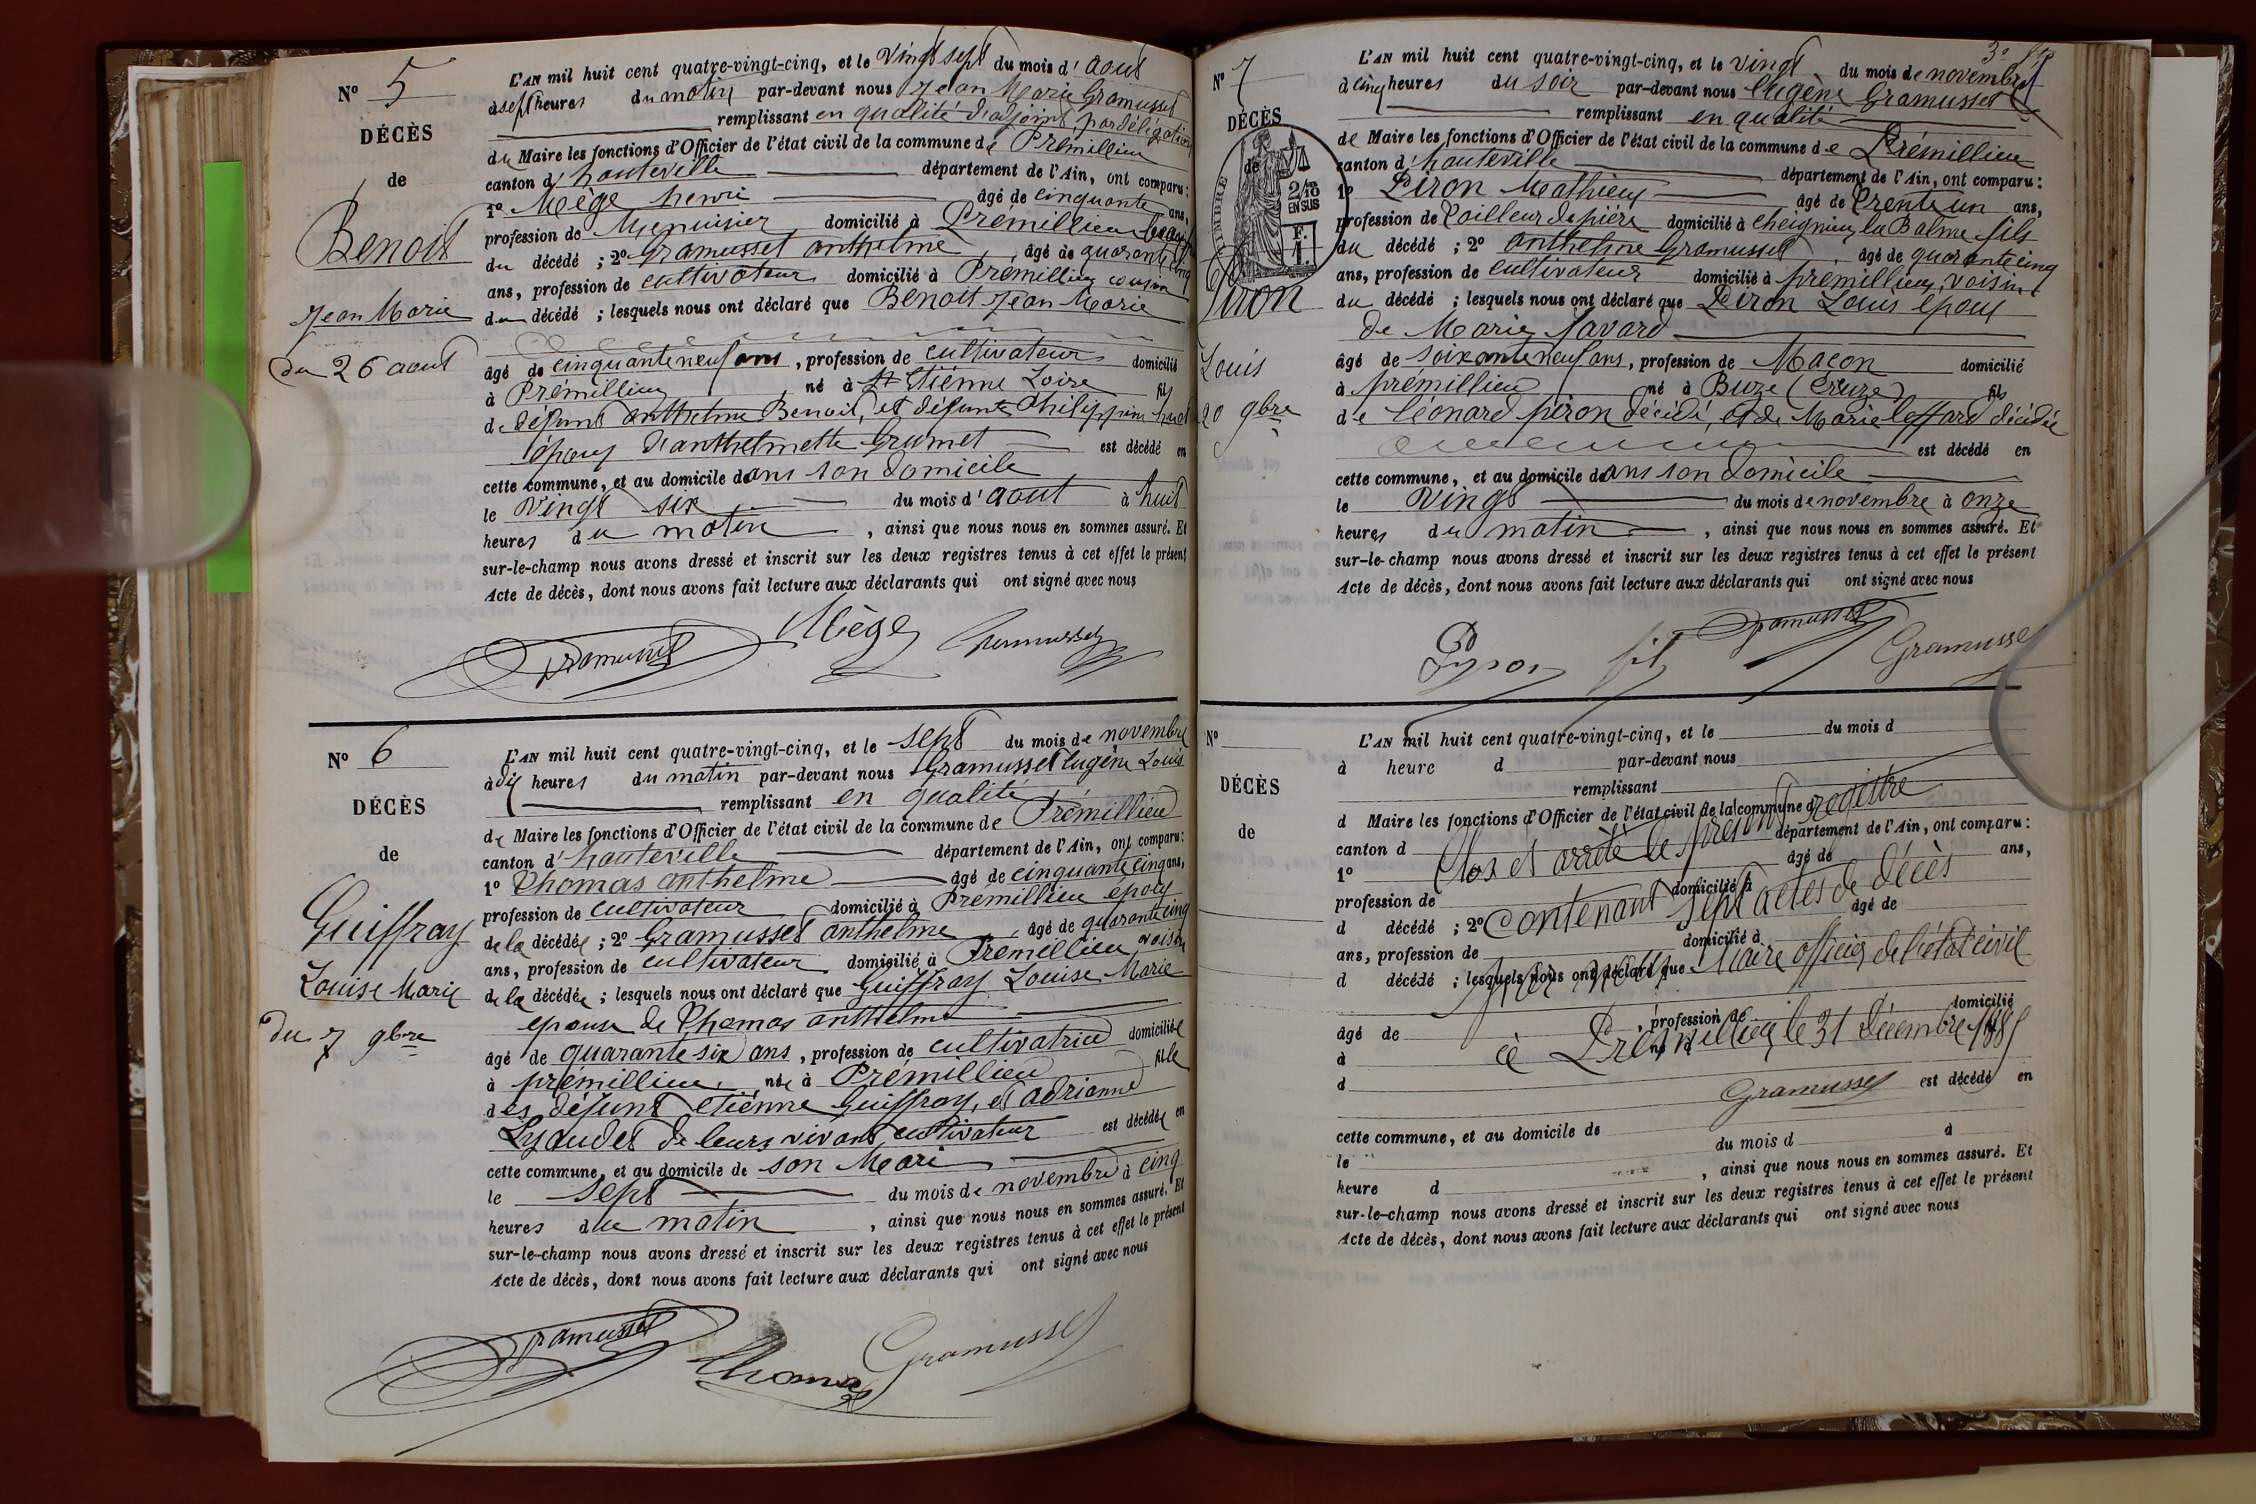 N° 5
DÉCÈS
de
Benoit
Jean Marie
du 26 aout
L'AN mil huit cent quatre-vingt-cinq, et le Vingt sept du mois d'aout
à sept heures du matin par-devant nous Jean Marie Gramusset
remplissant en qualité d'adjoint par délégation
du Maire les fonctions d'Officier de l'état civil de la commune de Prémillieu
canton d'hauteville département de l'Ain, ont comparu :
1° Mège henri âgé de cinquante ans,
profession de Menuisier domicilié à Prémillieu
du décédé ; 2° Gramusset anthelme, âgé de quarante cinq
ans, profession de cultivateur domicilié à Prémillieu cousin
du décédé ; lesquels nous ont déclaré que Benoit Jean Marie
âgé de cinquante neuf ans, profession de cultivateur domicilié
à Prémillieu, né à St Etiénne Loire fils
de défunt anthelme Benoit, et défunte Philippine
époux d'anthelmette Grumet est décédé en
cette commune, et au domicile dans son domicile
le Vingt six du mois d'aout à huit
heures du matin, ainsi que nous nous en sommes assuré. Et
sur-le-champ nous avons dressé et inscrit sur les deux registres tenus à cet effet le présent
Acte de décès, dont nous avons fait lecture aux déclarants qui ont signé avec nous
Gramusset Mège Gramusset
N° 6
DÉCÈS
de
Guiffray
Louise Marie
du 7 9bre
L'AN mil huit cent quatre-vingt-cinq, et le sept du mois de novembre
à dix heures du matin par-devant nous Gramusset Eugène Louis
remplissant en qualité
de Maire les fonctions d'Officier de l'état civil de la commune de Prémillieu
canton d'hauteville département de l'Ain, ont comparu :
1° Thomas anthelme âgé de cinquante cinq ans,
profession de cultivateur domicilié à Prémillieu époux
de la décédée ; 2° Gramusset anthelme, âgé de quarante cinq
ans, profession de cultivateur domicilié à Premillieu voisin
de la décédée ; lesquels nous ont déclaré que Guiffray Louise Marie
épouse de Thomas anthelme
âgé de quarante six ans, profession de cultivatrice domiciliée
à prémillieu, née à Prémillieu fille
des défunt etiénne Guiffray, et adrianne
Lyaudet de leurs vivant cultivateur est décédée en
cette commune, et au domicile de son Mari
le sept du mois de novembre à cinq
heures du matin, ainsi que nous nous en sommes assuré. Et
sur-le-champ nous avons dressé et inscrit sur les deux registres tenus à cet effet le présent
Acte de décès, dont nous avons fait lecture aux déclarants qui ont signé avec nous
Gramusset Thomas Gramusset
N° 7
DÉCÈS
de
TIMBRE
2/10
EN SUS
F.
1.
Piron
Louis
20 9bre
L'AN mil huit cent quatre-vingt-cinq, et le vingt du mois de novembre
à cinq heures du soir par-devant nous Eugène Gramusset
remplissant en qualité
de Maire les fonctions d'Officier de l'état civil de la commune de Prémillieu
canton d'hauteville département de l'Ain, ont comparu :
1° Piron Mathieu âgé de Trente un ans,
profession de Tailleur de piére domicilié à cheignieu la Balme fils
du décédé ; 2° anthelme Gramusset, âgé de quarante cinq
ans, profession de cultivateur domicilié à prémillieu, voisin
du décédé ; lesquels nous ont déclaré que Piron Louis époux
de Marie Savard
âgé de soixante neuf ans, profession de Maçon domicilié
à prémillieu né à Buze (Creuze) fils
de Léonard piron décédé, et de Marie Leffard décédée
est décédé en
cette commune, et au domicile dans son domicile
le Vingt du mois de novembre à onze
heures du matin, ainsi que nous nous en sommes assuré. Et
sur-le-champ nous avons dressé et inscrit sur les deux registres tenus à cet effet le présent
Acte de décès, dont nous avons fait lecture aux déclarants qui ont signé avec nous
Pyron fils Gramusset Gramusset
N°
DÉCÈS
de
L'AN mil huit cent quatre-vingt-cinq, et le du mois d
à heure d par-devant nous
remplissant
d Maire les fonctions d'Officier de l'état civil de la commune d
canton d département de l'Ain, ont comparu :
Clos et arrêté le présent registre
1° âgé de ans,
profession de domicilié à
Contenant sept actes de décès
d décédé ; 2° âgé de
ans, profession de domicilié à
d décédé ; lesquels nous ont déclaré que
par nous Maire officier de l'état civil
âgé de, profession de domicilié
à né à
à Prémillieu, le 31 décembre 1885
d
Gramusset
est décédé en
cette commune, et au domicile de
le du mois d à
heure d, ainsi que nous nous en sommes assuré. Et
sur-le-champ nous avons dressé et inscrit sur les deux registres tenus à cet effet le présent
Acte de décès, dont nous avons fait lecture aux déclarants qui ont signé avec nous